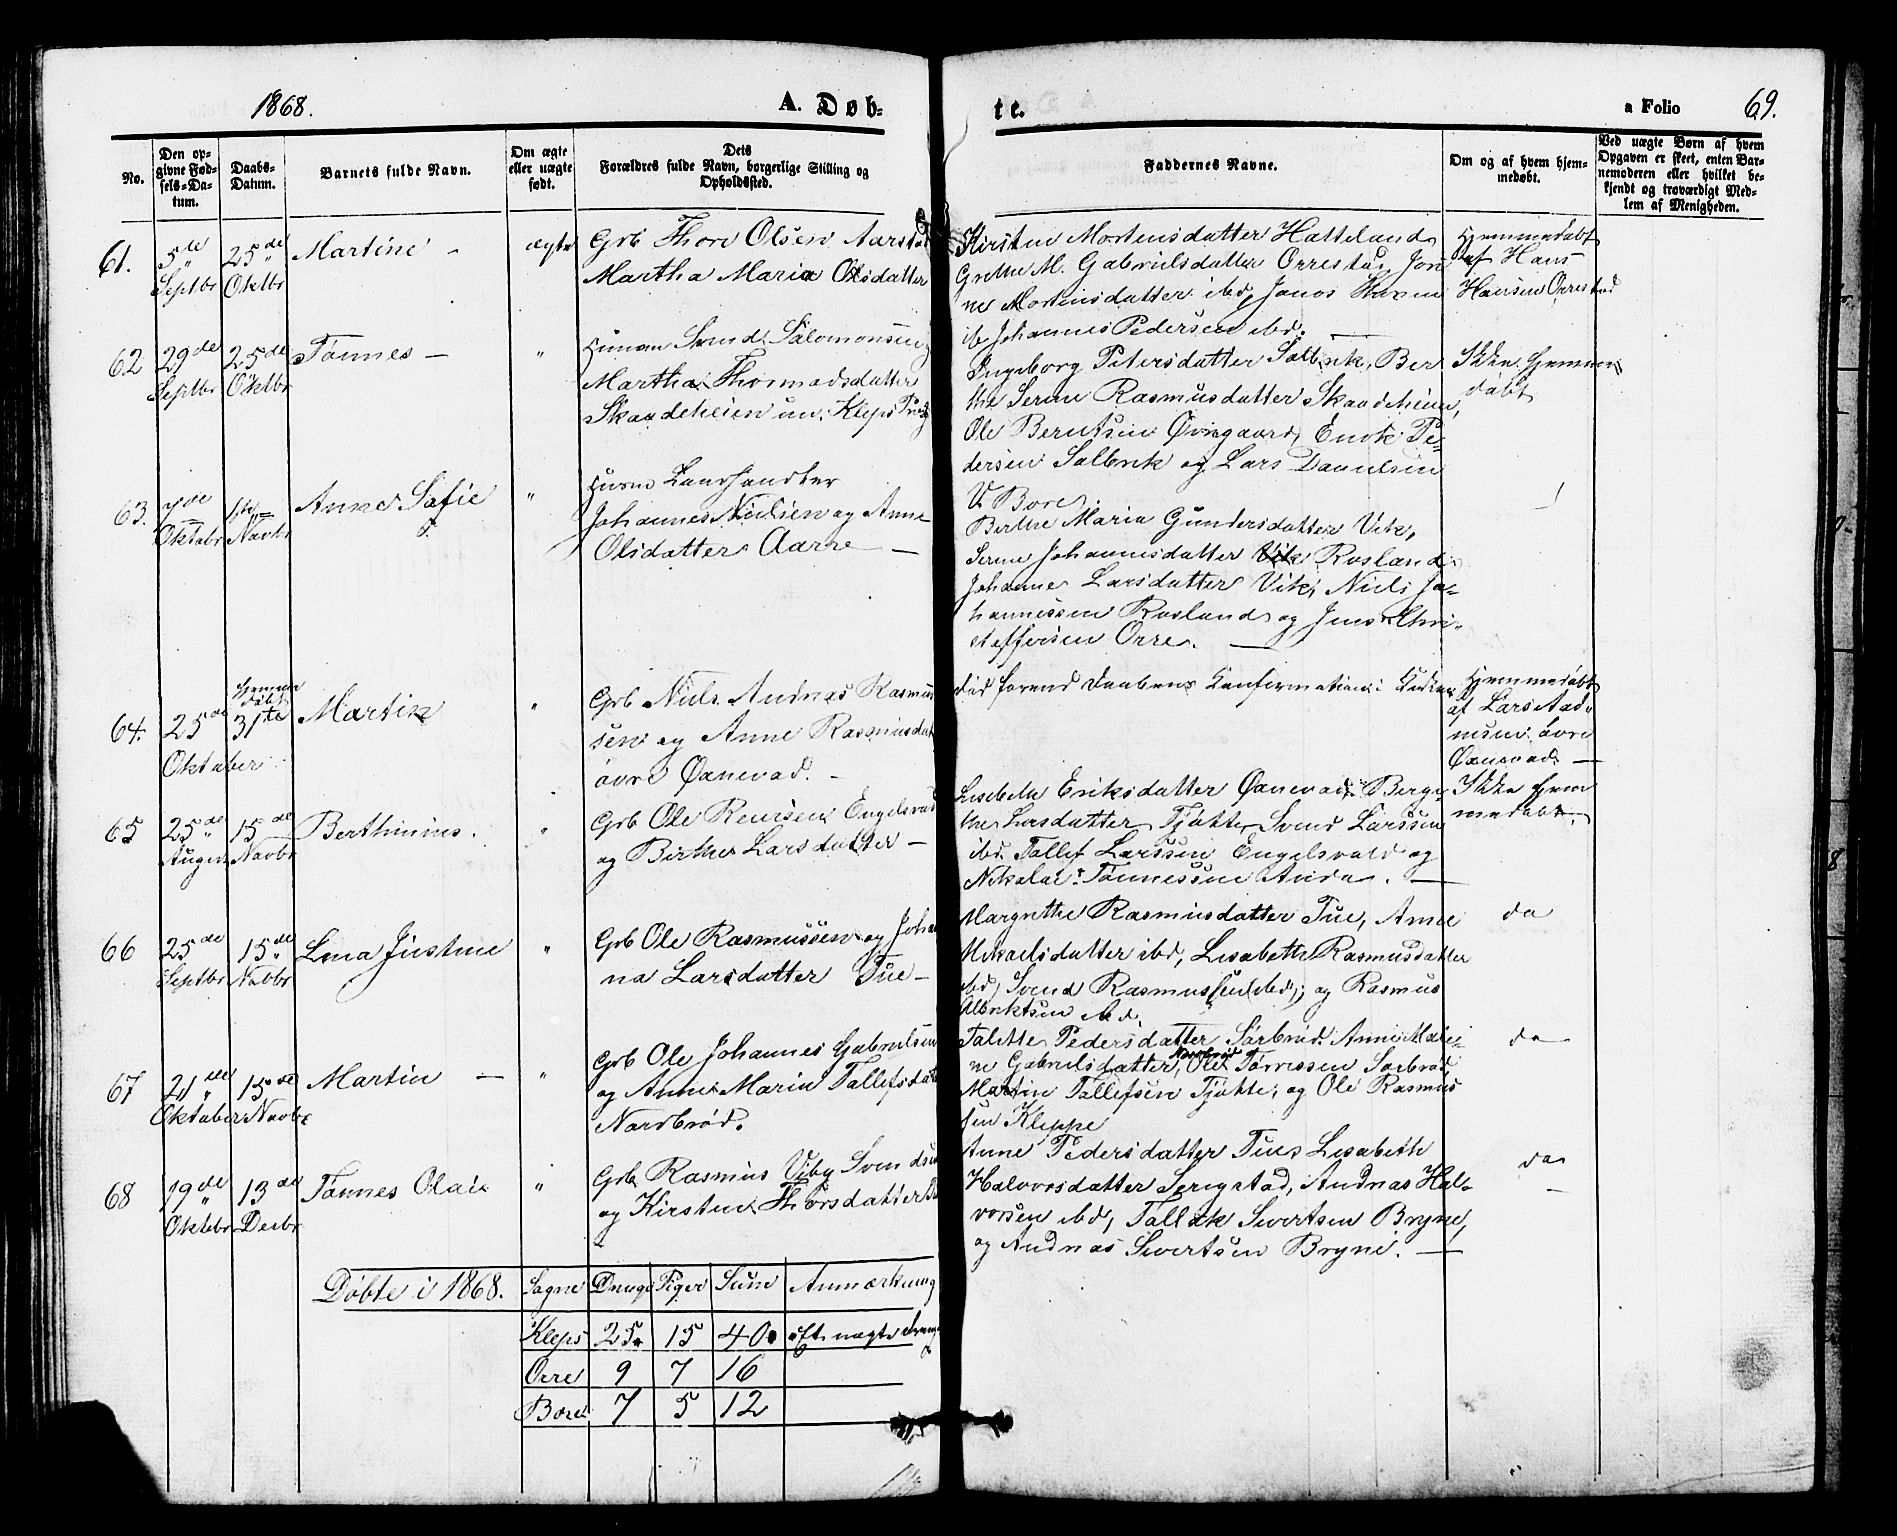 1868.
A. Døb-
te.
a Folio 69.
No.
Den op-
givne Fød-
sels-Da-
tum.
Daabs-
Datum.
Barnets fulde Navn.
Om ægte
eller uægte
født.
Dets
Forældres fulde Navn, borgerlige Stilling og
Opholdssted.
Faddernes Navne.
Om og af hvem hjem-
medøbt.
Ved uægte Børn af hvem
Opgaven er skeet, enten Bar-
nemoderen eller hvilket be-
kjendt og troværdigt Med-
lem af Menigheden.
61.
5te Septbr
25de Oktbr
Martine –
ægte
Grb Thore Olsen Aarstad
Martha Maria Olsdatter
Kirsten Mortensdatter Hatteland
Grethe M. Gabrielsdatter Orrestad,
ne Mortensdatter ibd, Jonas
ib Johannes Pedersen ibd. —
Hjemmedøbt
af Hans
Hansen Orrestad
62
29de Septbr
25de Oktbr
Tønnes –
"
Svend Salomonsen
Martha Thormodsdatter
Skaadeheien un. Kleps
Ingeborg Petersdatter Salbrek, Ber
the Serine Rasmusdatter Skaadeheien,
Ole Berntsen Øvregaard, Enok Pe-
dersen Salbrek og Lars Danielsen
V. Bore.
Ikke hjemme
døbt
63.
Oktobr
1ste Novbr
Anne Sofie
"
Landhandler
Johannes Nielsen og Anne
Olsdatter Aarre —
Berthe Maria Gundersdatter Vik,
Serine Johannesdatter Vik Rosland
Johanne Larsdatter Vik, Niels Jo-
hannessen Rosland og Jens Chri-
stoffersen Orre. —
64.
25de
Hjemme
døbt
31te
Oktober
Martin
"
Grb Niels Andreas Rasmus
sen og Anne Rasmusdat
øvre Øxnevad. –
Død forend Daabens Confirmation i Kirken
Hjemmedøbt
af Lars Aad-
nesen øvre
Øxnevad —
65
25de August
15de Novbr
Berthinius.
"
Grb Ole Reiersen Engelsvold
og Birthe Larsdatter –
Lisebeth Eriksdatter Øxnevad, Berge
the Larsdatter Tjøtte, Svend Larssen
ibd. Tollef Larssen Engelsvold og
Nikolai Tønnessen Anda. —
Ikke hjem
medøbt.
66
25de Septbr
15de Novbr
Lina Justine
"
Grb Ole Rasmussen og Joha
na Larsdatter Tue –
Margrethe Rasmusdatter Tue, Anne
Mikaelsdatter ibd, Lisabeth Rasmusdatter
ibd, Svend Rasmussen ibd, og Rasmus
Albriktsen ibd.
do
67
21de Oktober
15de Novbr
Martin —
"
Grb Ole Johannes Gabrielsen
og Anne Maria Tollefsdat
Nordbrød.
Talette Pedersdatter Sørbrød. Anne Male-
ne Gabrielsdatter, Nordbrød Ole Tørressen Sørbrød
Martin Tollefsen Tjøtte, og Ole Rasmus
sen Kleppe
do
68
19de Oktbr
13de Decbr
Tønnes Olai
"
Grb Rasmus Viby Svendsen
og Kirsten Thorsdatter
Anne Pedersdatter Tue, Lisabeth
Halvorsdatter Serigstad, Andreas Hal-
vorsen ibd, Tollak Sivertsen Bryne,
og Andreas Sivertsen Bryne. —
do
–
Døbte i 1868.
Sogne Drenge Piger Sum Anmærkning
Kleps 25 15 40 uægte
Orre 9 7 16
Bore 7 5 12